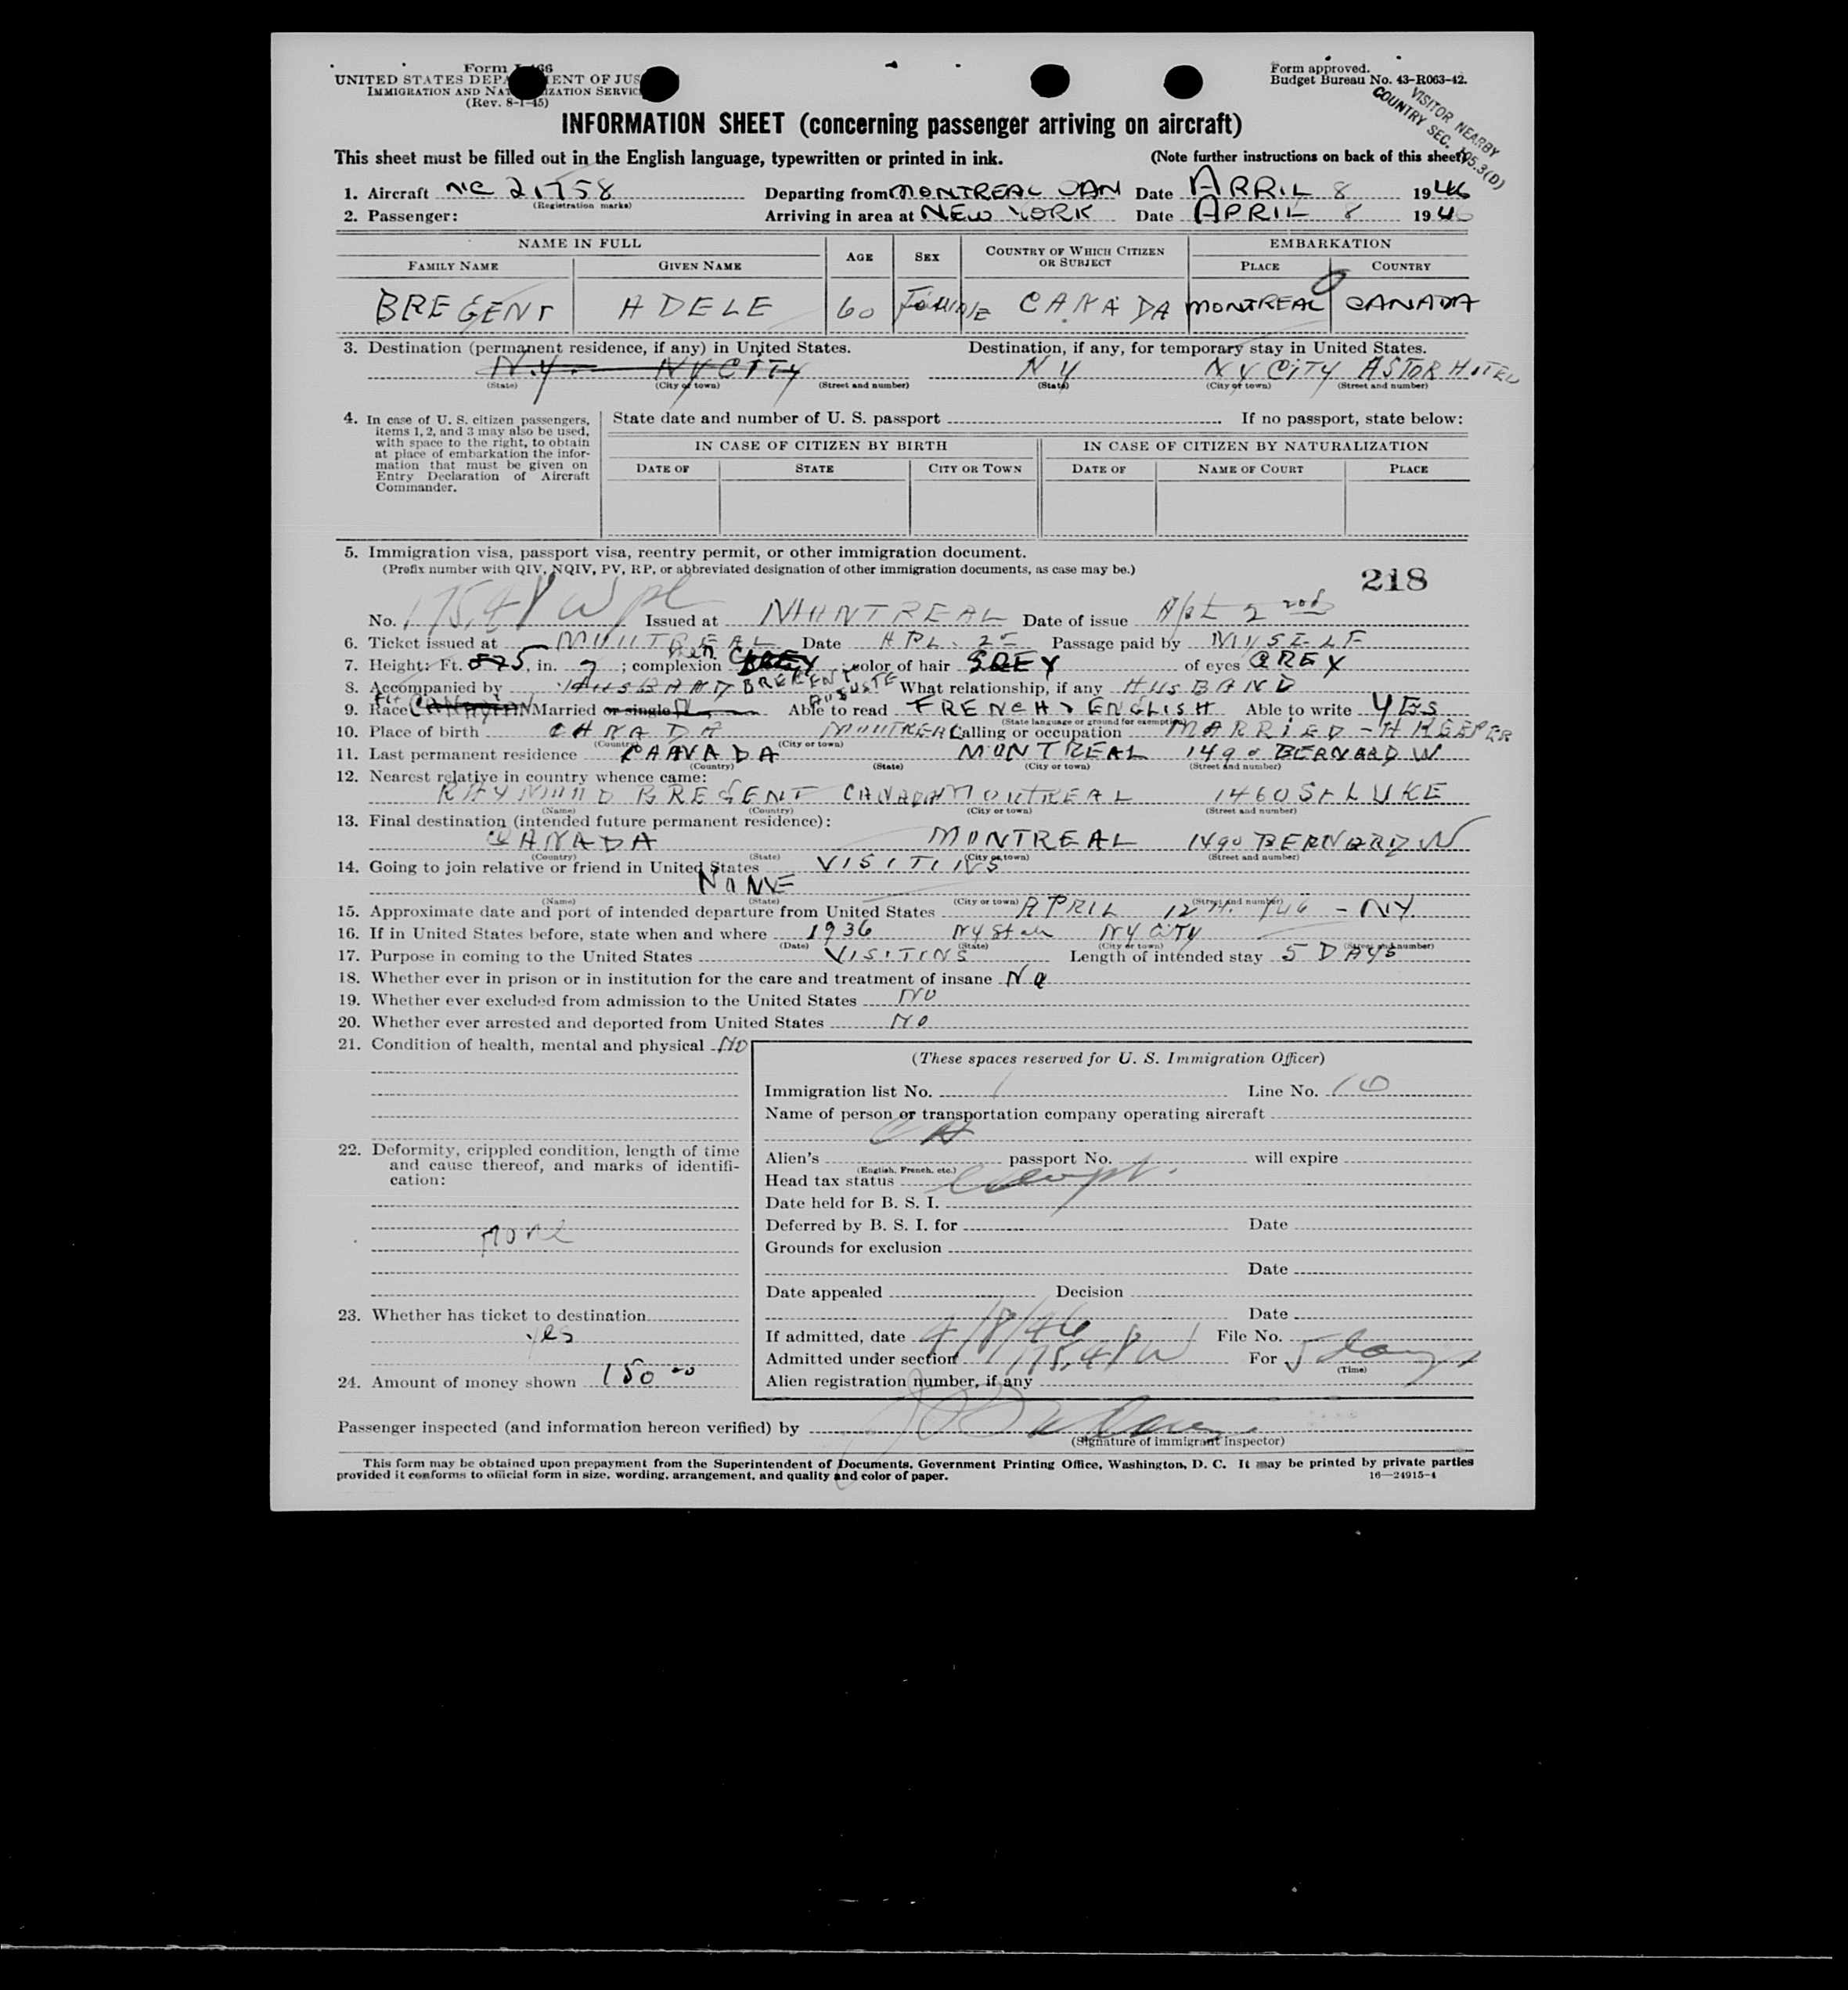 Form I-466
UNITED STATES DEPARTMENT OF JUSTICE
IMMIGRATION AND NATURALIZATION SERVICE
(Rev. 8-1-45)
Form approved.
Budget Bureau No. 43-R063-42.
VISITOR NEARBY
COUNTRY SEC. 105.3(D)
INFORMATION SHEET (concerning passenger arriving on aircraft)
This sheet must be filled out in the English language, typewritten or printed in ink. (Note further instructions on back of this sheet)
1. Aircraft NC 21758 Departing from MONTREAL CAN Date APRIL 8 1946
(Registration marks)
2. Passenger: Arriving in area at NEW YORK Date APRIL 8 1946
NAME IN FULL AGE SEX COUNTRY OF WHICH CITIZEN OR SUBJECT EMBARKATION
FAMILY NAME GIVEN NAME PLACE COUNTRY
BREGENT ADELE 60 CANADA MONTREAL CANADA
3. Destination (permanent residence, if any) in United States. Destination, if any, for temporary stay in United States.
N.Y. NY CITY NY NY CITY ASTOR HOTEL
(State) (City or town) (Street and number) (State) (City or town) (Street and number)
4. In case of U. S. citizen passengers, items 1, 2, and 3 may also be used, with space to the right, to obtain at place of embarkation the information that must be given on Entry Declaration of Aircraft Commander.
State date and number of U. S. passport If no passport, state below:
IN CASE OF CITIZEN BY BIRTH IN CASE OF CITIZEN BY NATURALIZATION
DATE OF STATE CITY OR TOWN DATE OF NAME OF COURT PLACE
5. Immigration visa, passport visa, reentry permit, or other immigration document.
(Prefix number with QIV, NQIV, PV, RP, or abbreviated designation of other immigration documents, as case may be.)
218
No. 175.48 Issued at MONTREAL Date of issue
6. Ticket issued at MONTREAL Date APL. 2 Passage paid by MYSELF
7. Height: Ft. 5, in. 7; complexion ; color of hair GREY of eyes GREY
8. Accompanied by HUSBAND BREGENT What relationship, if any HUSBAND
9. Race CANADIAN Married or single Able to read FRENCH & ENGLISH Able to write YES
(State language or ground for exemption)
10. Place of birth CANADA MONTREAL Calling or occupation MARRIED - H KEEPER
(Country) (City or town)
11. Last permanent residence CANADA MONTREAL 1490 BERNARD W
(Country) (State) (City or town) (Street and number)
12. Nearest relative in country whence came:
RAYMOND BREGENT CANADA MONTREAL 1460 St LUKE
(Name) (Country) (City or town) (Street and number)
13. Final destination (intended future permanent residence):
CANADA MONTREAL 1490 BERNARD W
(Country) (State) (City or town) (Street and number)
14. Going to join relative or friend in United States VISITING
NONE
(Name) (State) (City or town) (Street and number)
15. Approximate date and port of intended departure from United States APRIL 12 TH. 146 - NY.
16. If in United States before, state when and where 1936 NY State NY CITY
(Date) (State) (City or town) (Street and number)
17. Purpose in coming to the United States VISITING Length of intended stay 5 DAYS
18. Whether ever in prison or in institution for the care and treatment of insane NO
19. Whether ever excluded from admission to the United States NO
20. Whether ever arrested and deported from United States NO
21. Condition of health, mental and physical NO
22. Deformity, crippled condition, length of time and cause thereof, and marks of identification:
none
23. Whether has ticket to destination
yes
24. Amount of money shown 150 00
(These spaces reserved for U. S. Immigration Officer)
Immigration list No. 1 Line No. 10
Name of person or transportation company operating aircraft
Alien's passport No. will expire
(English, French, etc.)
Head tax status exempt.
Date held for B. S. I.
Deferred by B. S. I. for Date
Grounds for exclusion
Date
Date appealed Decision
Date
If admitted, date 4/8/46 File No.
Admitted under section 175.48 For 5 days
(Time)
Alien registration number, if any
Passenger inspected (and information hereon verified) by
(Signature of immigrant inspector)
This form may be obtained upon prepayment from the Superintendent of Documents, Government Printing Office, Washington, D. C. It may be printed by private parties
provided it conforms to official form in size, wording, arrangement, and quality and color of paper. 16—24915-4